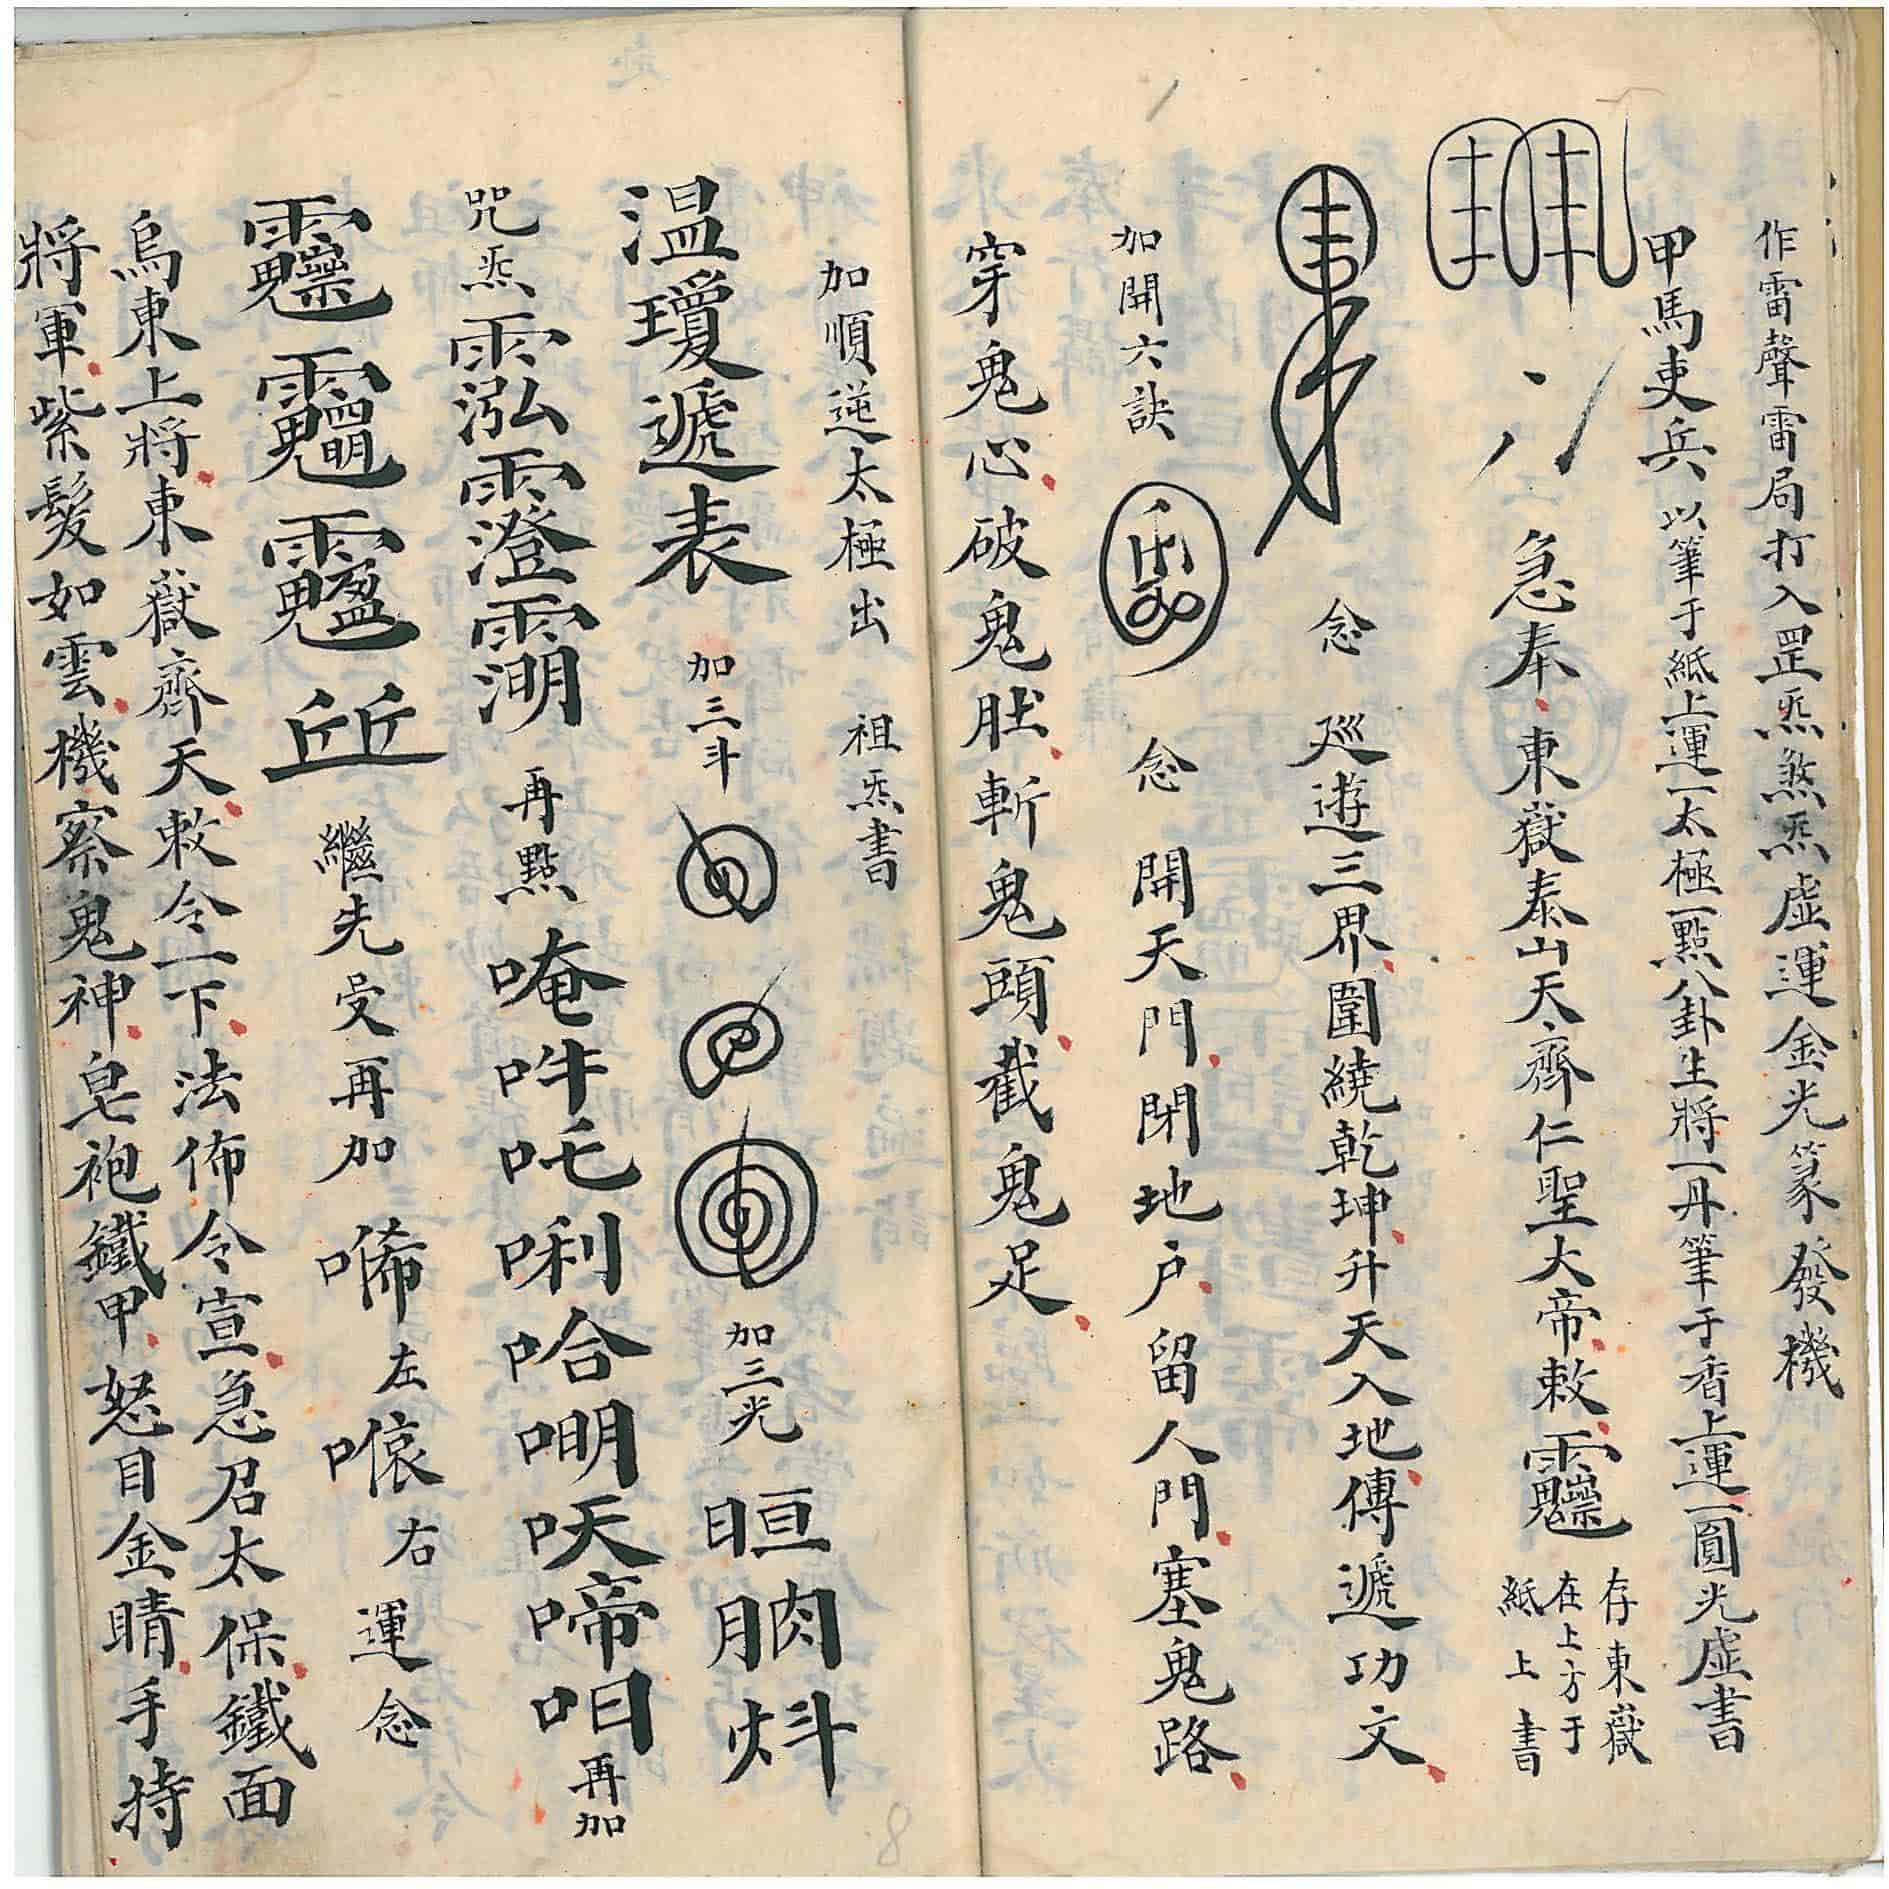 作雷聲雷局打入罡炁煞炁虛運金光篆發機
甲馬吏兵以筆于紙上運一太極一點八卦生將一丹筆于香上運一圓光虛書
急奉東嶽泰山天齊仁聖大帝敕
存東嶽
在上方于
紙上書
念 巡遊三界圍繞乾坤升天入地傳遞功文
加開六訣 念 開天門閉地户留人門塞鬼路
穿鬼心破鬼肚斬鬼頭截鬼足
加順逆太極出 祖炁書
温瓊遞表 加三斗 加三光 晅
咒炁 再點 唵吽吒唎哈 再加
繼先受再加 唏左 右運念
烏東上將東嶽齊天敕令一下法佈令宣急召太保鐵面
將軍紫髮如雲機察鬼神皂袍鐵甲怒目金睛手持
8